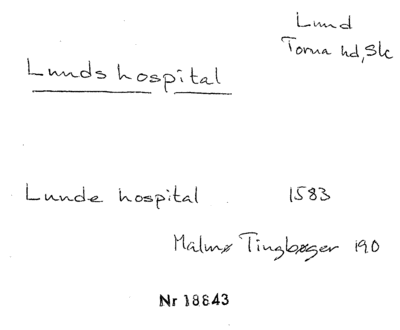 Lund
Torna hd, Sk
Lunds hospital
Lunde hospital 1583
Malmø Tingbøger 190
Nr 18843